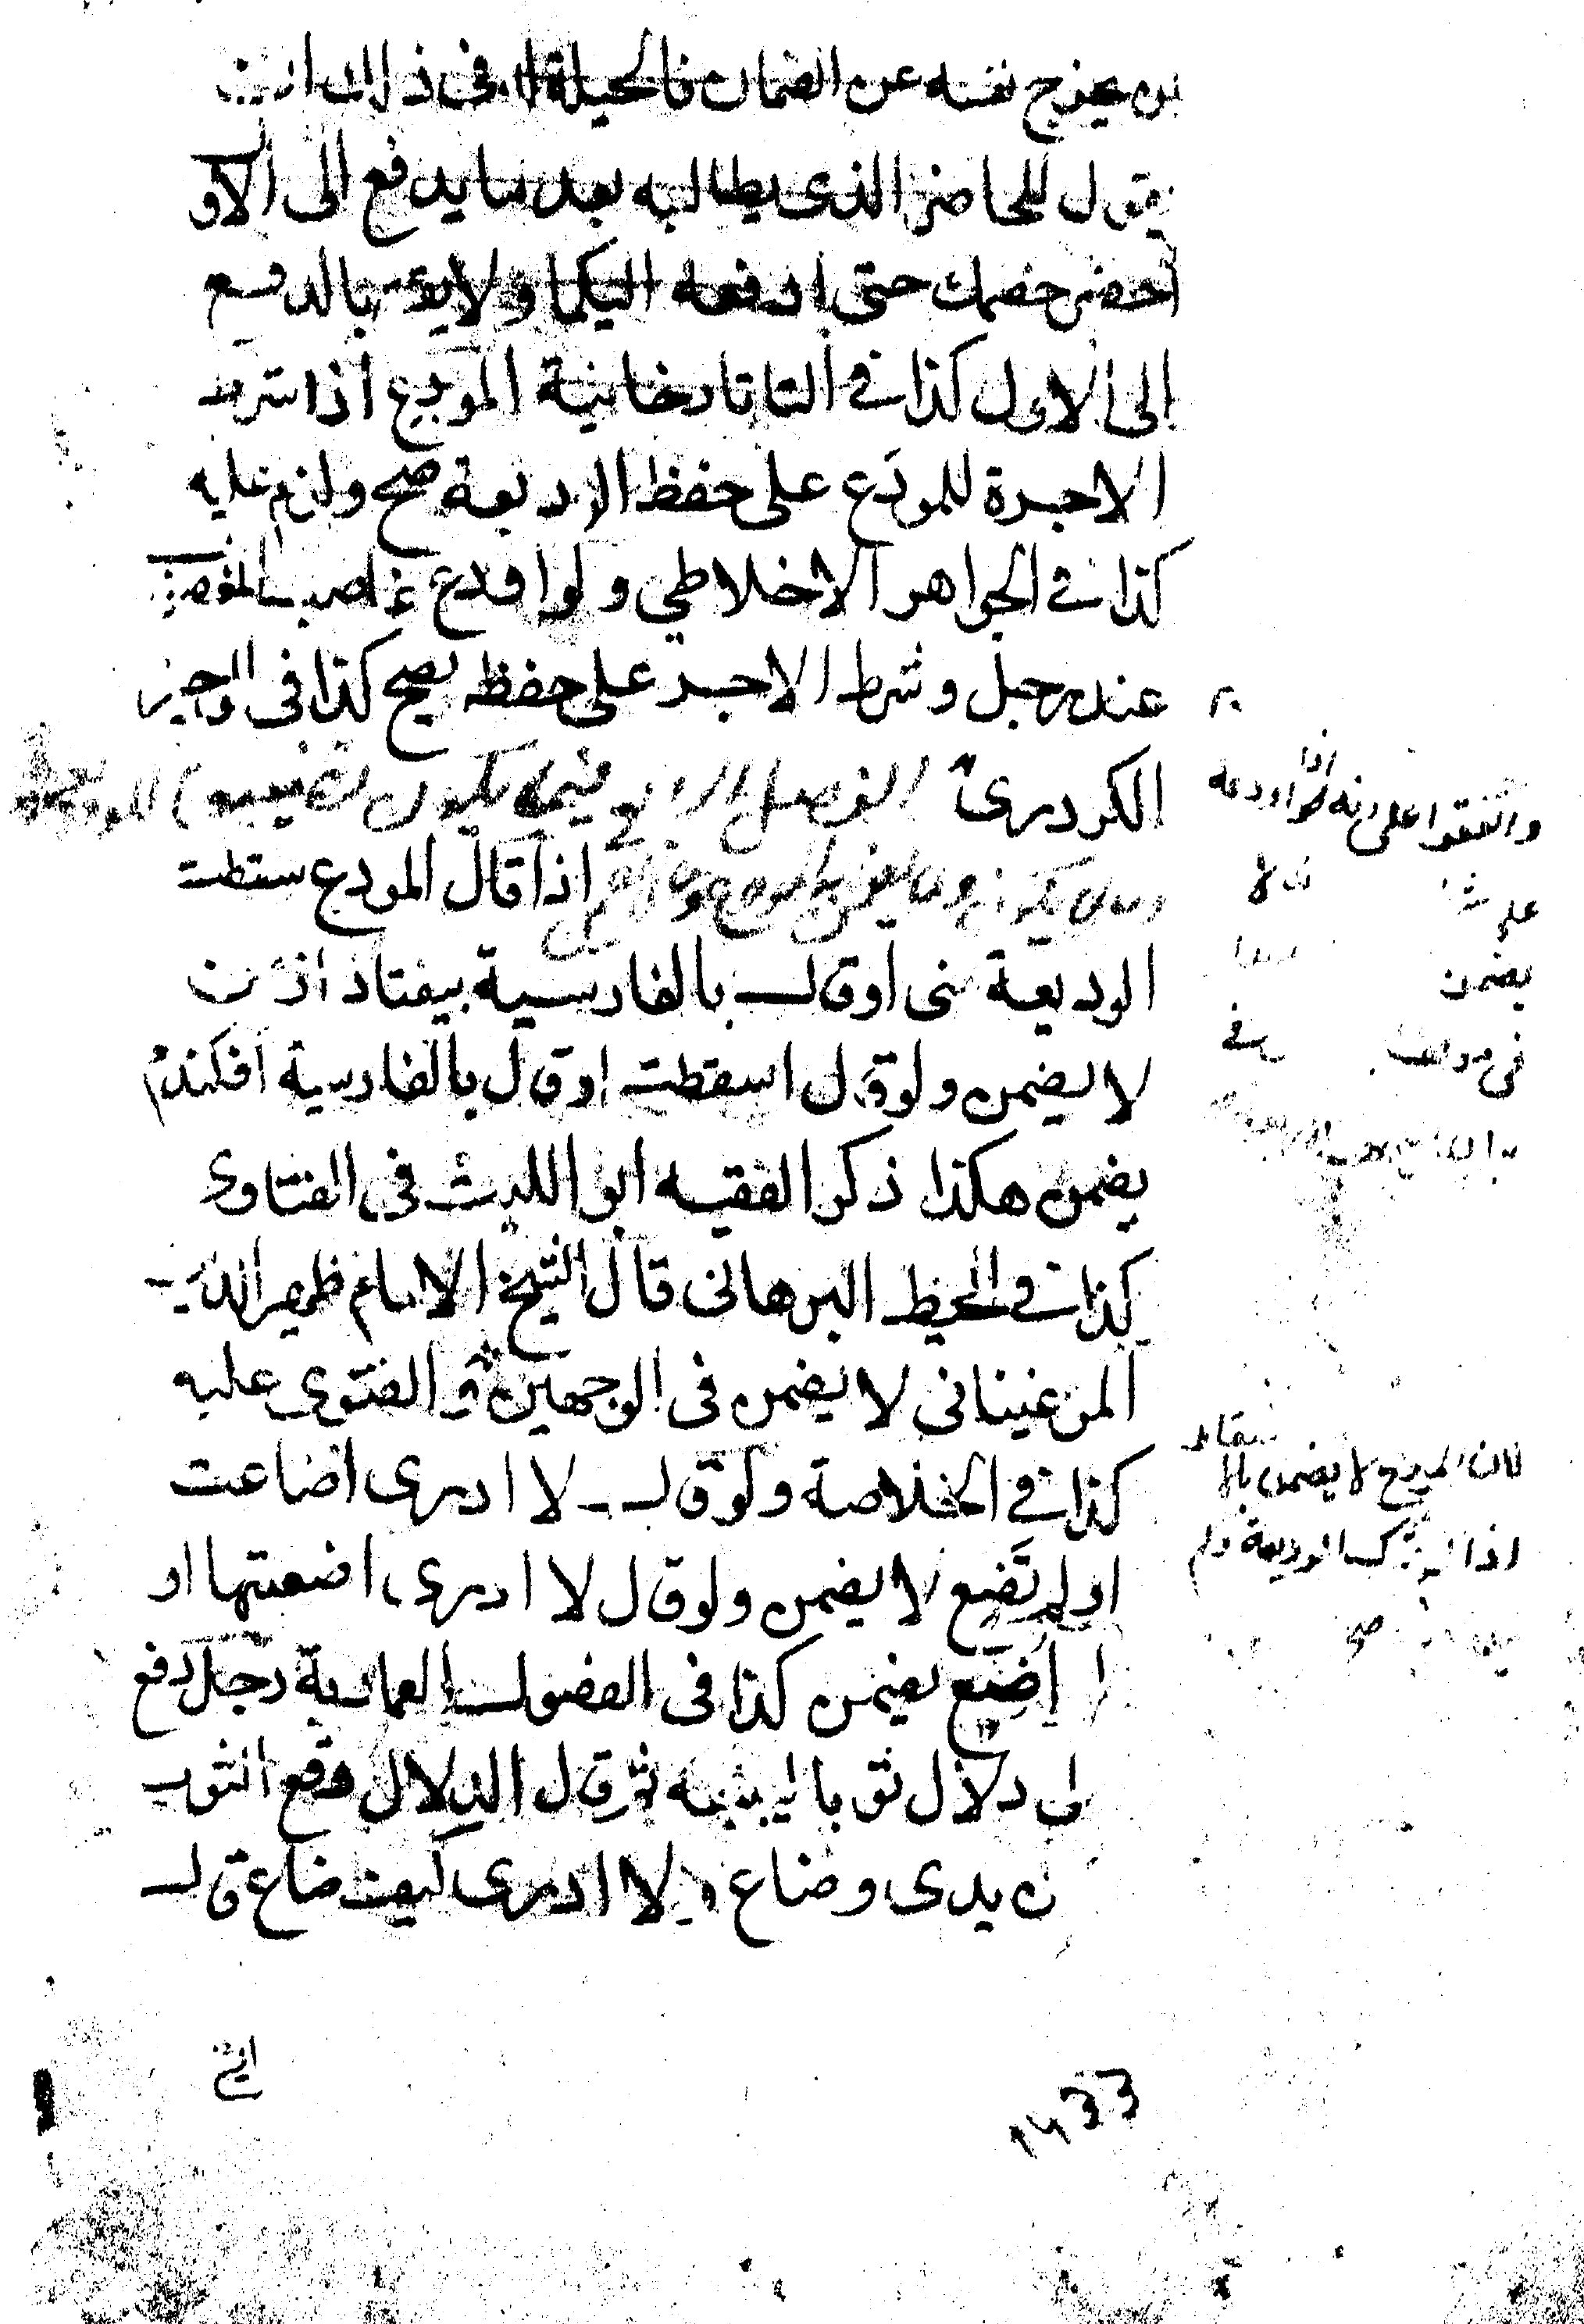 من يخرج نفسه عن الضمان فالحيلة له في ذلك ان
يقول للحاضر الذي يطالبه بعد ما يدفع الى الاول
احضر خصمك حتى ادفعه اليكما ولا يقر بالدفع
الى الاول كذا في التاتارخانية المودع اذا شرط
الاجرة للمودَع على حفظ الوديعة صح ولزم عليه
كذا في الجواهر الاخلاطي ولو اودع غاصب المغصوب
عند رجل وشرط الاجر على حفظه يصح كذا في الوجيز
الكردري الفصل الرابع فيما يكون تضييعا للوديعة
وما لا يكون وما يضمن به المودع وما لا يضمن اذا قال المودع سقطت
الوديعة مني او قال بالفارسية بيفتاد از من
لا يضمن ولو قال اسقطت او قال بالفارسية افكندم
يضمن هكذا ذكر الفقيه ابو الليث في الفتاوى
كذا في المحيط البرهاني قال الشيخ الامام ظهير الدين
المرغيناني لا يضمن في الوجهين والفتوى عليه
كذا في الخلاصة ولو قال لا ادري اضاعت
او لم تَضِع لا يضمن ولو قال لا ادري اضعتها او
لم اُضِع يضمن كذا في الفصول العمادية رجل دفع
الى دلال ثوبا ليبيعه ثم قال الدلال وقع الثوب
من يدي وضاع ولا ادري كيف ضاع قال
الشيخ
واتفقوا على انه اذا اودعه
يضمن
لان المودع لا يضمن بالاسقاط
اذا لم يترك الوديعة ولم
صح
1433